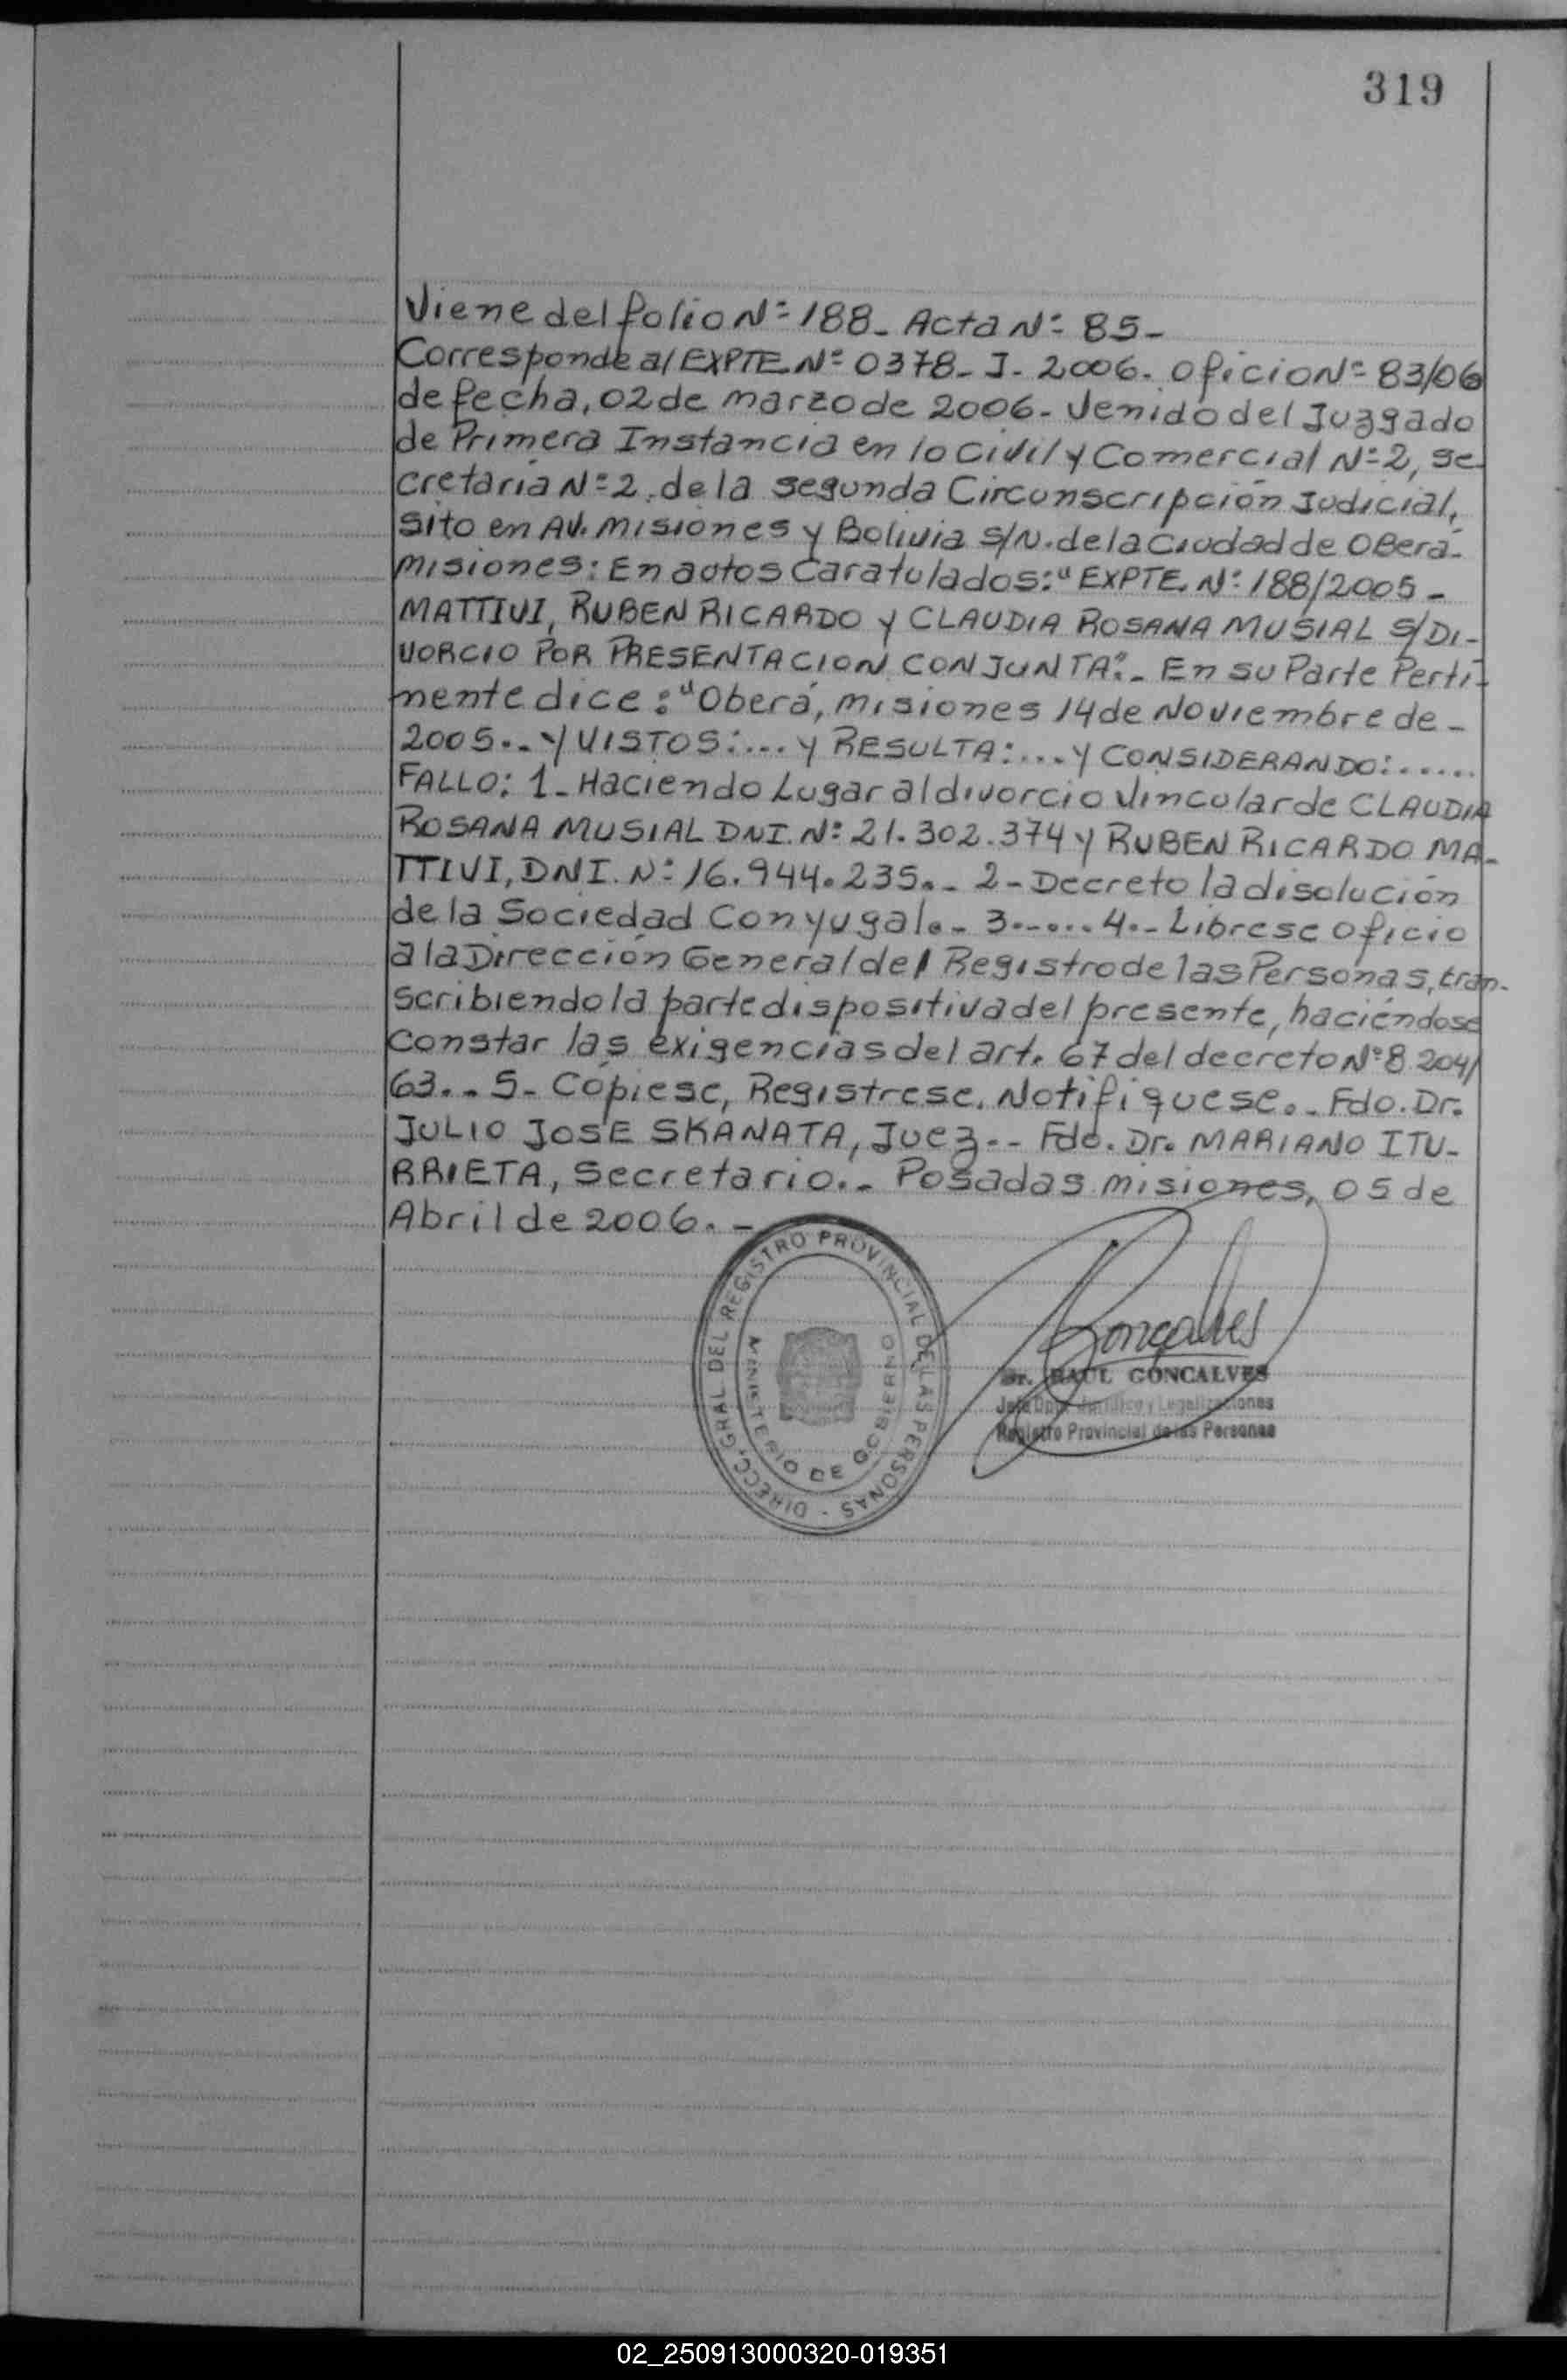 319
Viene del folio Nº 188_ Acta Nº 85_
Corresponde al EXPTE Nº 0378_ J_ 2006_ oficio Nº 83/06
de fecha, 02 de marzo de 2006_ Venido del Juzgado
de Primera Instancia en lo Civil y Comercial Nº 2, se
cretaria Nº 2, de la segunda Circunscripción Judicial,
sito en AV. misiones y Bolivia S/N. de la Ciudad de OBerá_
misiones: En autos Caratulados: "EXPTE. Nº 188/2005_
MATTIVI, RUBEN RICARDO y CLAUDIA ROSANA MUSIAL S/DI-
VORCIO POR PRESENTACION CONJUNTA"._ En su Parte Perti-
nente dice: "Oberá, misiones 14 de Noviembre de_
2005._ Y VISTOS:.... y RESULTA:.... y CONSIDERANDO:......
FALLO: 1_ Haciendo Lugar al divorcio Vincular de CLAUDIA
ROSANA MUSIAL DNI. Nº 21.302.374 y RUBEN RICARDO MA-
TTIVI, DNI. Nº 16.944.235._ 2_ Decreto la disolución
de la Sociedad Conyugal._ 3...... 4._ Librese oficio
a la Dirección General del Registro de las Personas, tran-
scribiendo la parte dispositiva del presente, haciéndose
Constar las exigencias del art. 67 del decreto Nº 8.204/
63._ 5_ Cópiese, Registrese, Notifiquese._ Fdo. Dr.
JULIO JOSE SKANATA, Juez._ Fdo. Dr. MARIANO ITU-
RRIETA, Secretario._ Posadas misiones, 05 de
Abril de 2006._
DIRECC. GRAL DEL REGISTRO PROVINCIAL DE LAS PERSONAS -
MINISTERIO DE GOBIERNO
Goncalves
Dr. RAUL GONCALVES
Jefe Dpto. Jurídico y Legalizaciones
Registro Provincial de las Personas
02_250913000320-019351